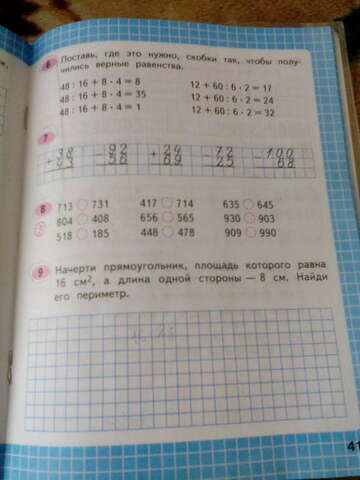 6 Поставь, где это нужно, скобки так, чтобы полу-
чились верные равенства.
48 : 16 + 8 · 4 = 8 12 + 60 : 6 · 2 = 17
48 : 16 + 8 · 4 = 35 12 + 60 : 6 · 2 = 24
48 : 16 + 8 · 4 = 1 12 + 60 : 6 · 2 = 32
7
+ 38 - 92 + 24 - 72 - 100
56 69 25 68
8 713 731 417 714 635 645
604 408 656 565 930 903
518 185 448 478 909 990
9 Начерти прямоугольник, площадь которого равна
16 см², а длина одной стороны — 8 см. Найди
его периметр.
41